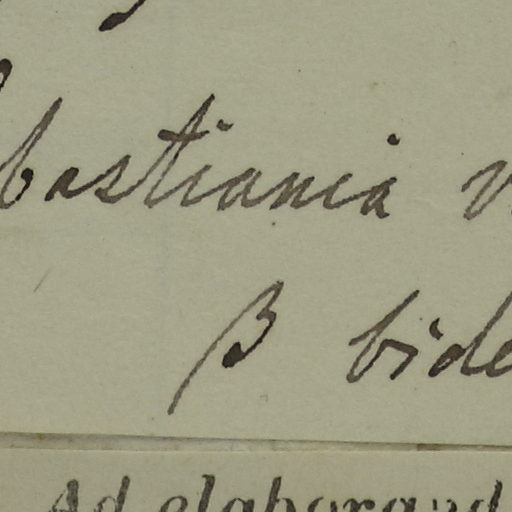 bastiania v
β bide
Ad elaborand